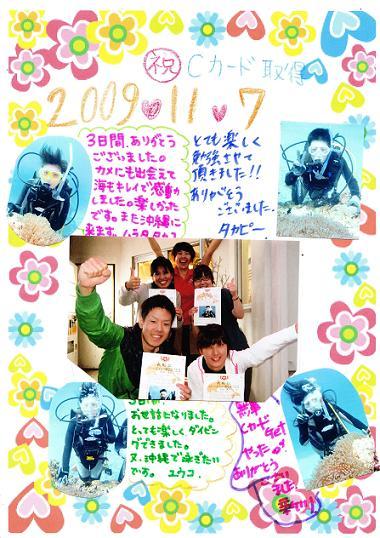 祝 Cカード取得
2009♥11♥7
3日間、ありがとう
ございました。
カメにも出会えて
海もキレイで感動
しました。楽しかった
です。また沖縄に
来ます。
とても楽しく
勉強させて
頂きました!!
ありがとう
ございました。
タカピー
3日間、
お世話になりました。
とっても楽しくダイビン
グできました。
又、沖縄で泳ぎたい
です。 ユウコ
無事
Cカードget
やったー
ありがとう
ござい
ました